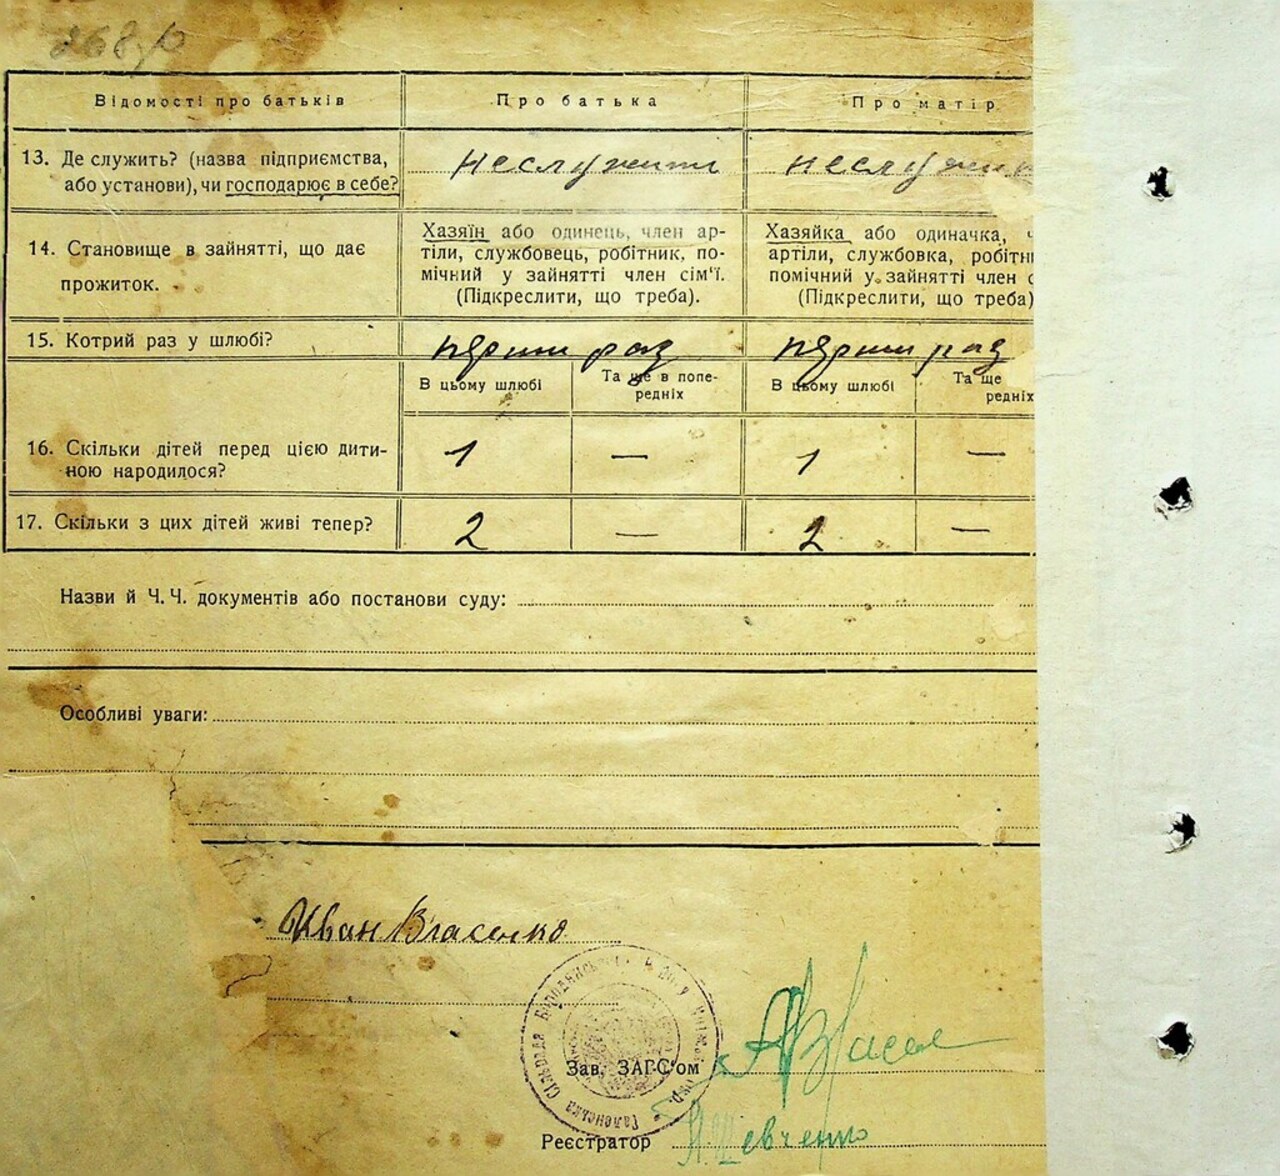 268
Відомості про батьків
Про батька
Про матір
13. Де служить? (назва підприємства,
або установи), чи господарює в себе?
неслужити
14. Становище в зайнятті, що дає
прожиток.
Хазяїн або одинець, член ар-
тіли, службовець, робітник, по-
мічний у зайнятті член сім'ї.
(Підкреслити, що треба).
Хазяйка або одиначка,
артіли, службовка,
помічний у зайнятті член
(Підкреслити, що треба)
15. Котрий раз у шлюбі?
раз
раз
В цьому шлюбі
Та ще в попе-
редніх
В цьому шлюбі
Та ще
редніх
16. Скільки дітей перед цією дити-
ною народилося?
1 — 1 —
17. Скільки з цих дітей живі тепер?
2 — 2 —
Назви й Ч. Ч. документів або постанови суду:
Особливі уваги:
Иван Власенко
Сільрада
Зав. ЗАГС'ом
Реєстратор
Шевченко